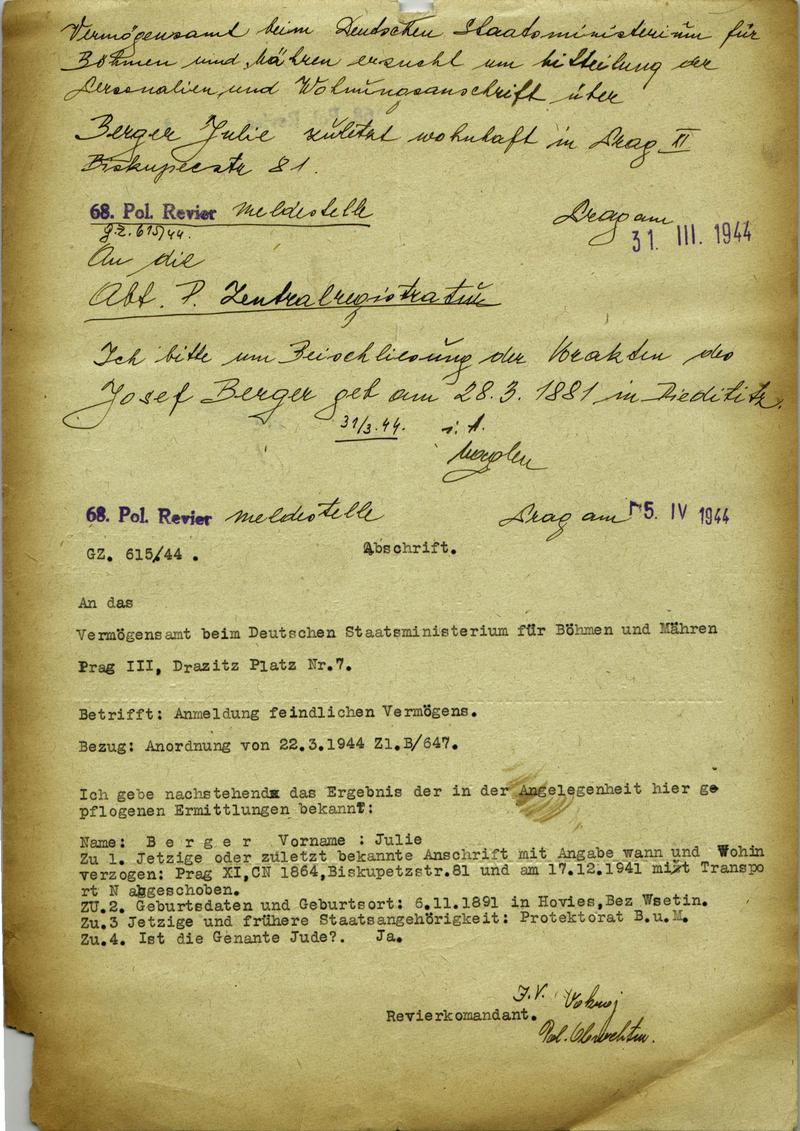 Vermögensamt beim Deutschen Staatsministerium für
Böhmen und Mähren ersucht um Mitteilung der
Personalien und Wohnungsanschrift über
Berger Julie zuletzt wohnhaft in Prag II
Biskupecstr 81.
68. Pol. Revier Meldestelle
GZ. 615/44.
Prag am
31. III. 1944
An die
Abt. P. Zentralregistratur
Ich bitte um Beischliesung der Vorakten des
Josef Berger geb am 28.3.1881 in Diedititz.
31/3.44. i. A.
68. Pol. Revier Meldestelle Prag am 5. IV 1944
GZ. 615/44 . Abschrift.
An das
Vermögensamt beim Deutschen Staatsministerium für Böhmen und Mähren
Prag III, Drazitz Platz Nr.7.
Betrifft: Anmeldung feindlichen Vermögens.
Bezug: Anordnung von 22.3.1944 Zl.B/647.
Ich gebe nachstehend das Ergebnis der in der Angelegenheit hier ge
pflogenen Ermittlungen bekannt:
Name: B e r g e r Vorname : Julie
Zu 1. Jetzige oder zuletzt bekannte Anschrift mit Angabe wann und Wohin
verzogen: Prag XI,CN 1864,Biskupetzstr.81 und am 17.12.1941 mit Transpo
rt N abgeschoben.
ZU.2. Geburtsdaten und Geburtsort: 6.11.1891 in Hovies,Bez Wsetin.
Zu.3 Jetzige und frühere Staatsangehörigkeit: Protektorat B.u.M.
Zu.4. Ist die Genante Jude?. Ja.
J.V.
Revierkomandant.